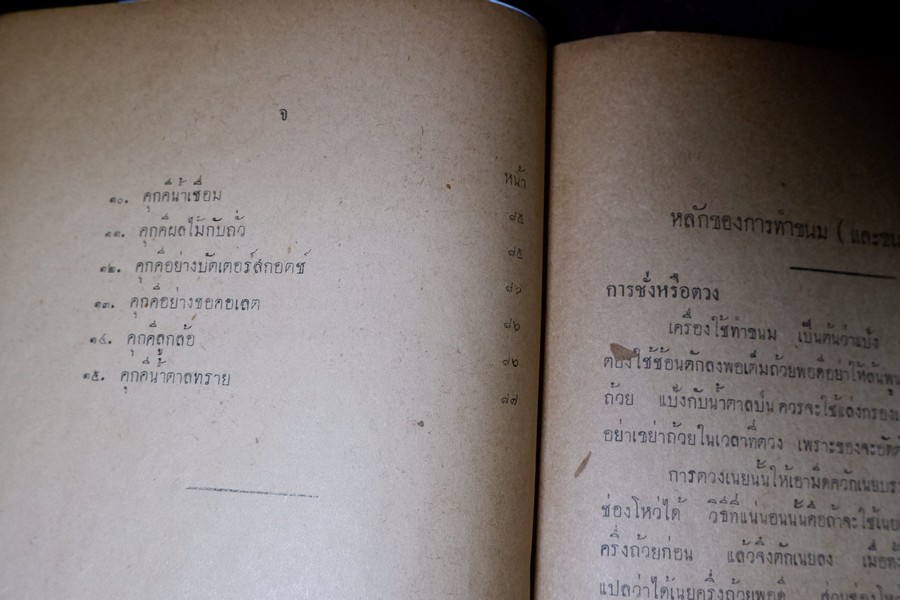 จ
หน้า
๑๐. คุกคีน้ำเชื่อม ๘๕
๑๑. คุกคีผลไม้กับถั่ว ๘๕
๑๒. คุกคีอย่างบัตเตอร์สกอตช์ ๘๖
๑๓. คุกคีอย่างชอคอเลต ๘๖
๑๔. คุกคีลูกล้อ ๘๖
๑๕. คุกคีน้ำตาลทราย ๘๗
หลักของการทำขนม ( และขน
การชั่งหรือตวง
เครื่องใช้ทำขนม เป็นต้นว่าแป้ง
ต้องใช้ช้อนตักลงพอเต็มถ้วยพอดีอย่าให้ล้นพูน
ถ้วย แป้งกับน้ำตาลป่นควรจะใช้แล่งกรอง
อย่าเขย่าถ้วยในเวลาที่ตวง เพราะของจะอัด
การตวงเนยนั้นให้เอามีดควักเนย
ช่องโหว่ได้ วิธีที่แน่นอนนั้นคือถ้าจะใช้เนย
ครึ่งถ้วยก่อน แล้วจึงตักเนยลง เมื่อ
แปลว่าได้เนยครึ่งถ้วยพอดี ส่วนช่องโหว่